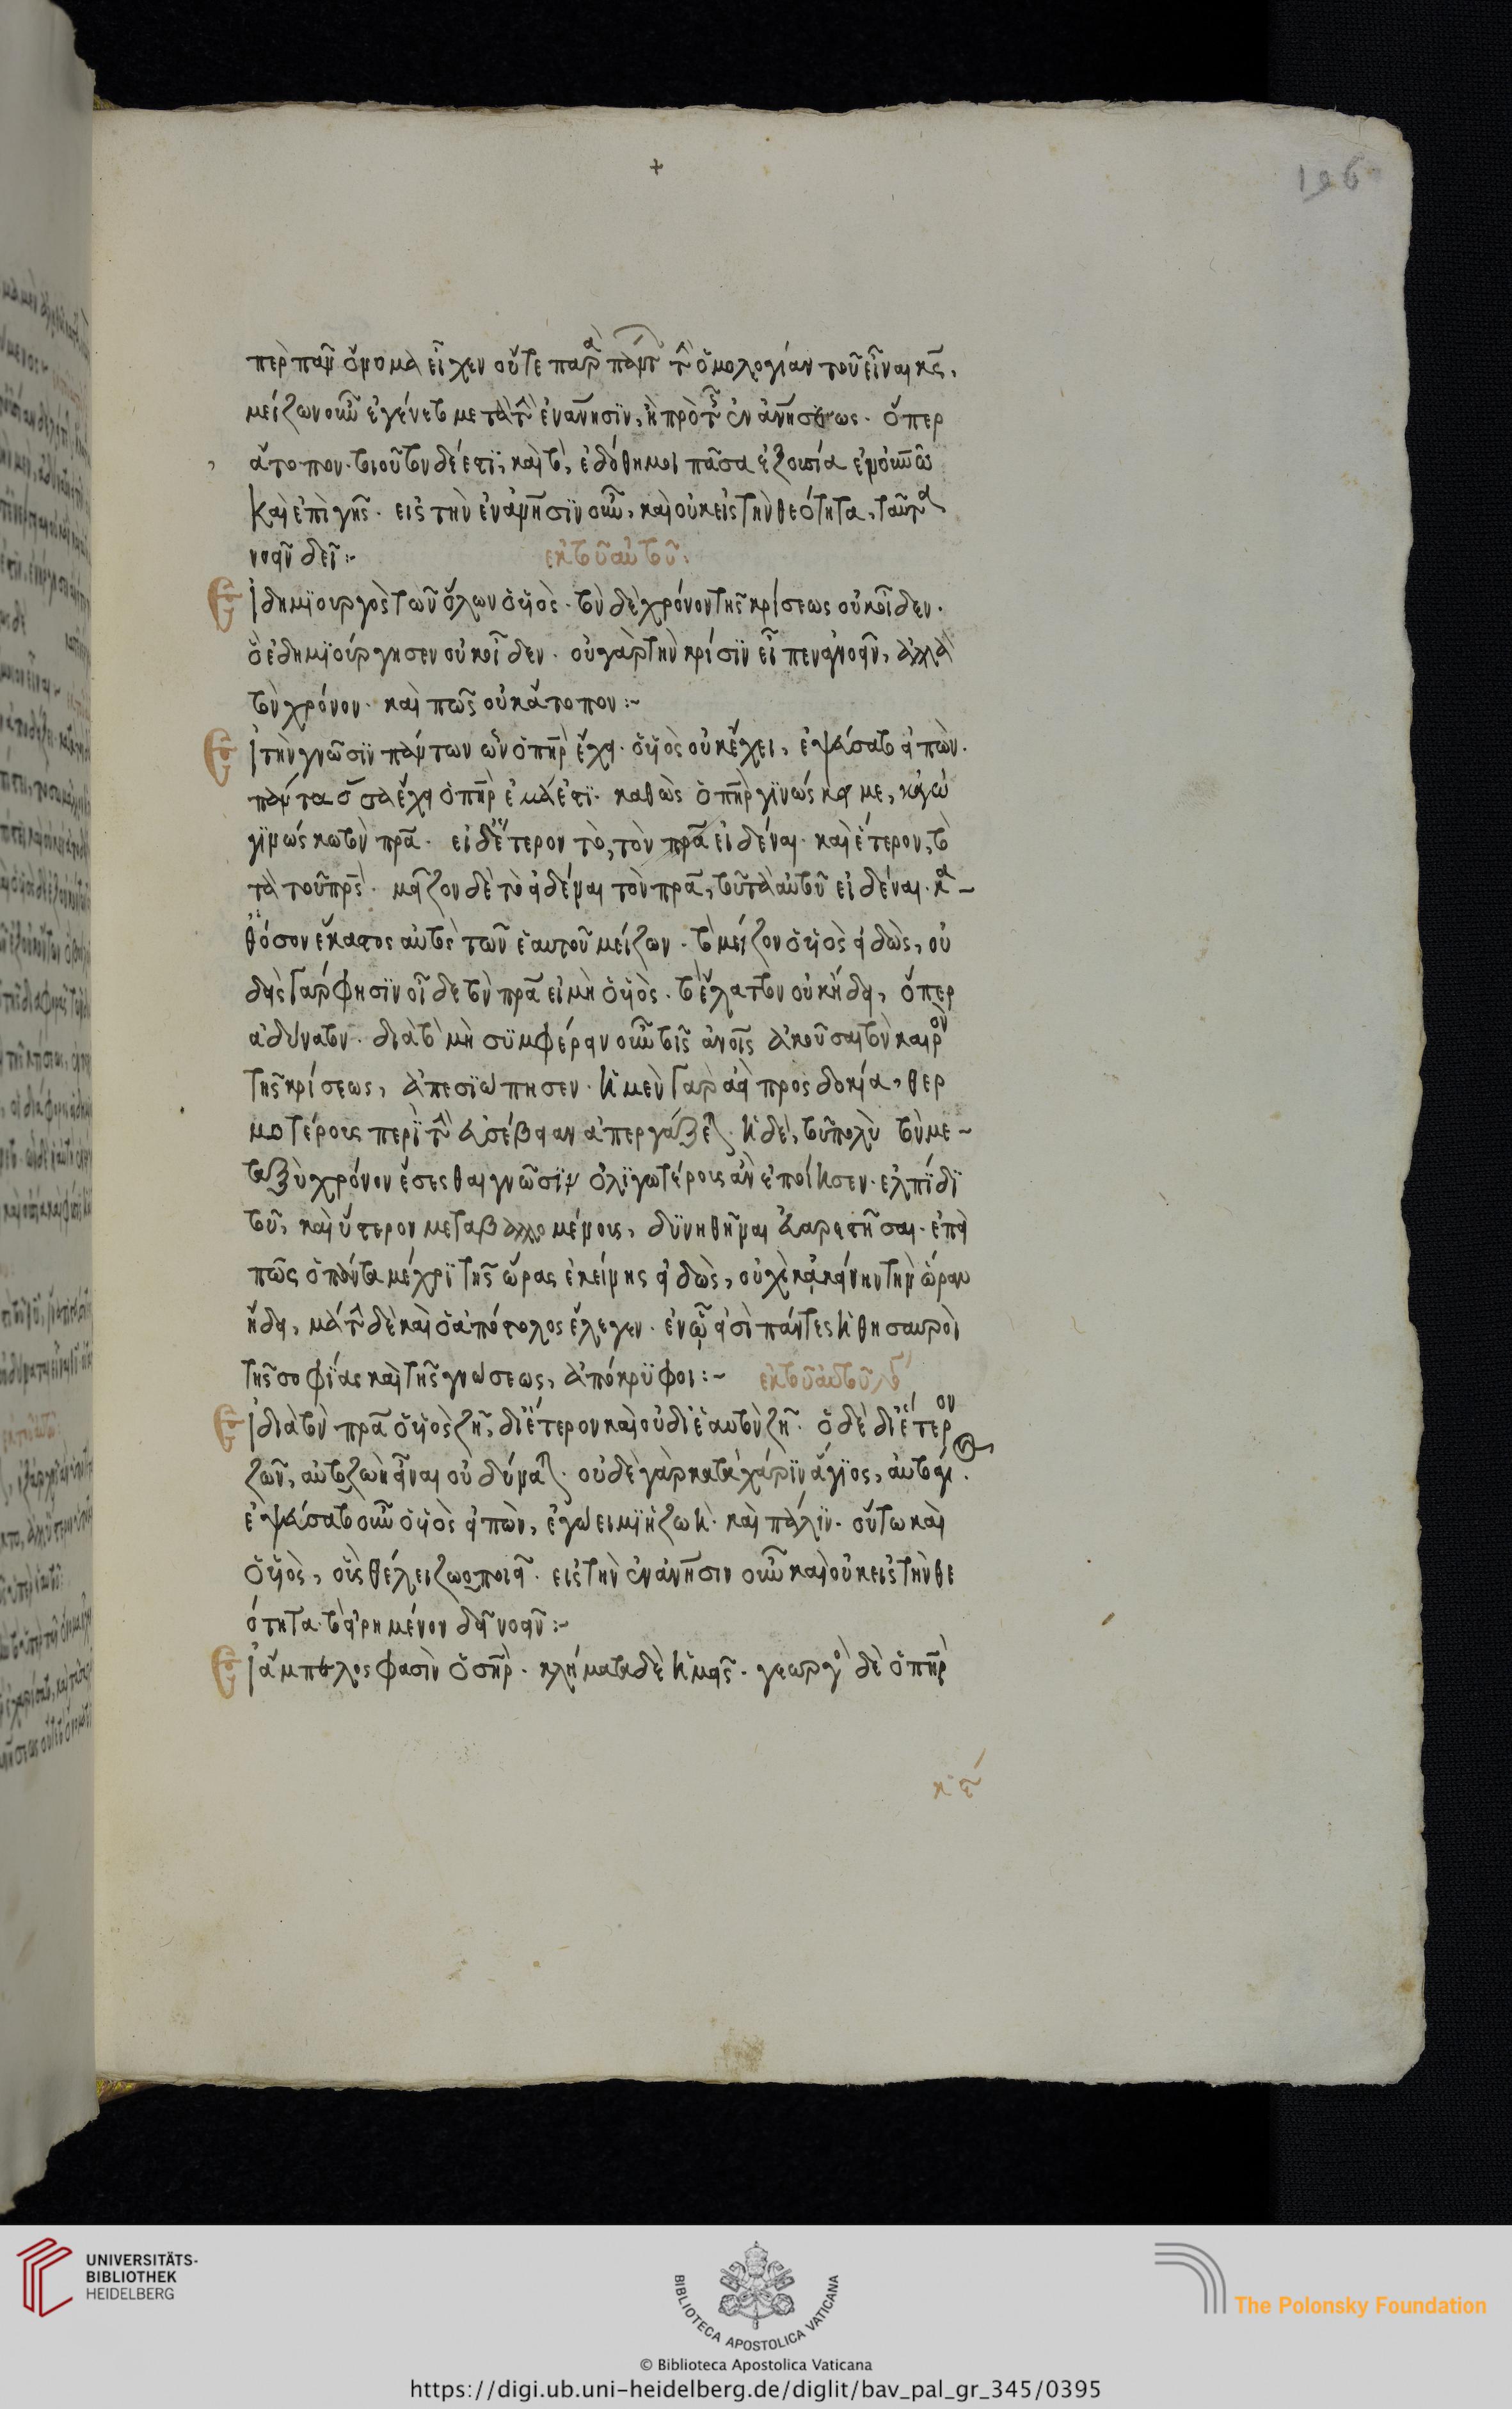 +
196
περ πᾶν ὄνομα εἶχεν οὔτε παρὰ πάντ τ ὁμολογίαν τοῦ εἶναι κς,
μείζων οὖν ἐγένετο μετὰ τ ἐνανησιν, ἢ πρὸ τ ἐνανησεως. ὅπερ
ἄτοπον. τοιοῦτον δέ ἐστι, καὶ τὸ, ἐδόθη μοι πᾶσα ἐξουσία ἐν οὐνῶ
καὶ ἐπὶ γῆς. εἰς τὴν ἐνάνησιν οὖν, καὶ οὐκ εἰς τὴν θεότητα, ταῦτα
νοεῖν δεῖ:~ ἐκ τοῦ αὐτοῦ:
Εἰ δημιουργὸς τῶν ὅλων ὁ υἱὸς. τὸν δὲ χρόνον τῆς κρίσεως οὐκ οἶδεν.
ὃ ἐδημιούργησεν οὐκ οἶδεν. οὐ γὰρ τὴν κρίσιν εἶπεν ἀγνοεῖν, ἀλλὰ
τὸν χρόνον. καὶ πῶς οὐκ ἄτοπον:~
Εἰ τὴν γνῶσιν πάντων ὧν ὁ πηρ ἔχει. ὁ υἱὸς οὐκ ἔχει, ἐψεύσατο εἰπών.
πάντα ὅσα ἔχει ὁ πηρ ἐμά ἐστι. καθὼς ὁ πηρ γινώσκει με, κἀγὼ
γινώσκω τὸν πρα. εἰ δὲ ἕτερον τὸ, τὸν πρα εἰδέναι. καὶ ἕτερον, τὸ
τὰ τοῦ πρς. μεῖζον δὲ τὸ εἰδέναι τὸν πρα, τοῦ τὰ αὐτοῦ εἰδέναι. κα-
θόσον ἕκαστος αὐτὸς τῶν ἑαυτοῦ μείζων. τὸ μείζον ὁ υἱὸς εἰδὼς, οὐ
δεὶς γάρ φησιν οἶδε τὸν πρα εἰ μὴ ὁ υἱὸς. τὸ ἔλαττον οὐκ ἤδει, ὅπερ
ἀδύνατον. διὰ τὸ μὴ συμφέρειν οὖν τοῖς ἀνοις ἀκοῦσαι τὸν καιρὸν
τῆς κρίσεως, ἀπεσιώπησεν. ἡ μὲν γὰρ ἀεὶ προσδοκία, θερ
μοτέρους περὶ τ εὐσέβειαν ἀπεργάζε. ἡ δὲ, τοῦ πολὺ τὸν με-
ταξὺ χρόνον ἔσεσθαι γνῶσιν ὀλιγωτέρους ἂν ἐποίησεν. ἐλπίδι
τοῦ, καὶ ὕστερον μεταβαλλομένους, δυνηθῆναι εὐαρεστῆσαι. ἐπεὶ
πῶς ὁ πάντα μέχρι τῆς ὥρας ἐκείνης εἰδὼς, οὐχὶ κἀκείνην τὴν ὥραν
ᾔδει, μάτ δὲ καὶ ὁ ἀπόστολος ἔλεγεν. ἐν ᾧ εἰσὶ πάντες οἱ θησαυροὶ
τῆς σοφίας καὶ τῆς γνώσεως, ἀπόκρυφοι:~ ἐκ τοῦ αὐτοῦ
Εἰ διὰ τὸν πρα ὁ υἱὸς ζῇ, δι' ἕτερον καὶ οὐ δι' ἑαυτὸν ζῇ. ὁ δὲ δι' ἕτερον
ζῶν, αὐτοζωὴ εἶναι οὐ δύνα. οὐδὲ γὰρ κατὰ χάριν ἅγιος, αὐτοάγιος.
ἐψεύσατο οὖν ὁ υἱὸς εἰπὼν, ἐγώ εἰμι ἡ ζωὴ. καὶ πάλιν. οὕτω καὶ
ὁ υἱὸς, οὓς θέλει ζωοποιεῖ. εἰς τὴν ἐνάνησιν οὖν καὶ οὐκ εἰς τὴν θε
ότητα. τὸ εἰρημένον δεῖ νοεῖν:~
Εἰ ἄμπελος φασὶν ὁ σηρ. κλήματα δὲ ἡμεῖς. γεωργὸ δὲ ὁ πηρ
UNIVERSITÄTS-
BIBLIOTHEK
HEIDELBERG
BIBLIOTECA APOSTOLICA VATICANA
The Polonsky Foundation
© Biblioteca Apostolica Vaticana
https://digi.ub.uni-heidelberg.de/diglit/bav_pal_gr_345/0395